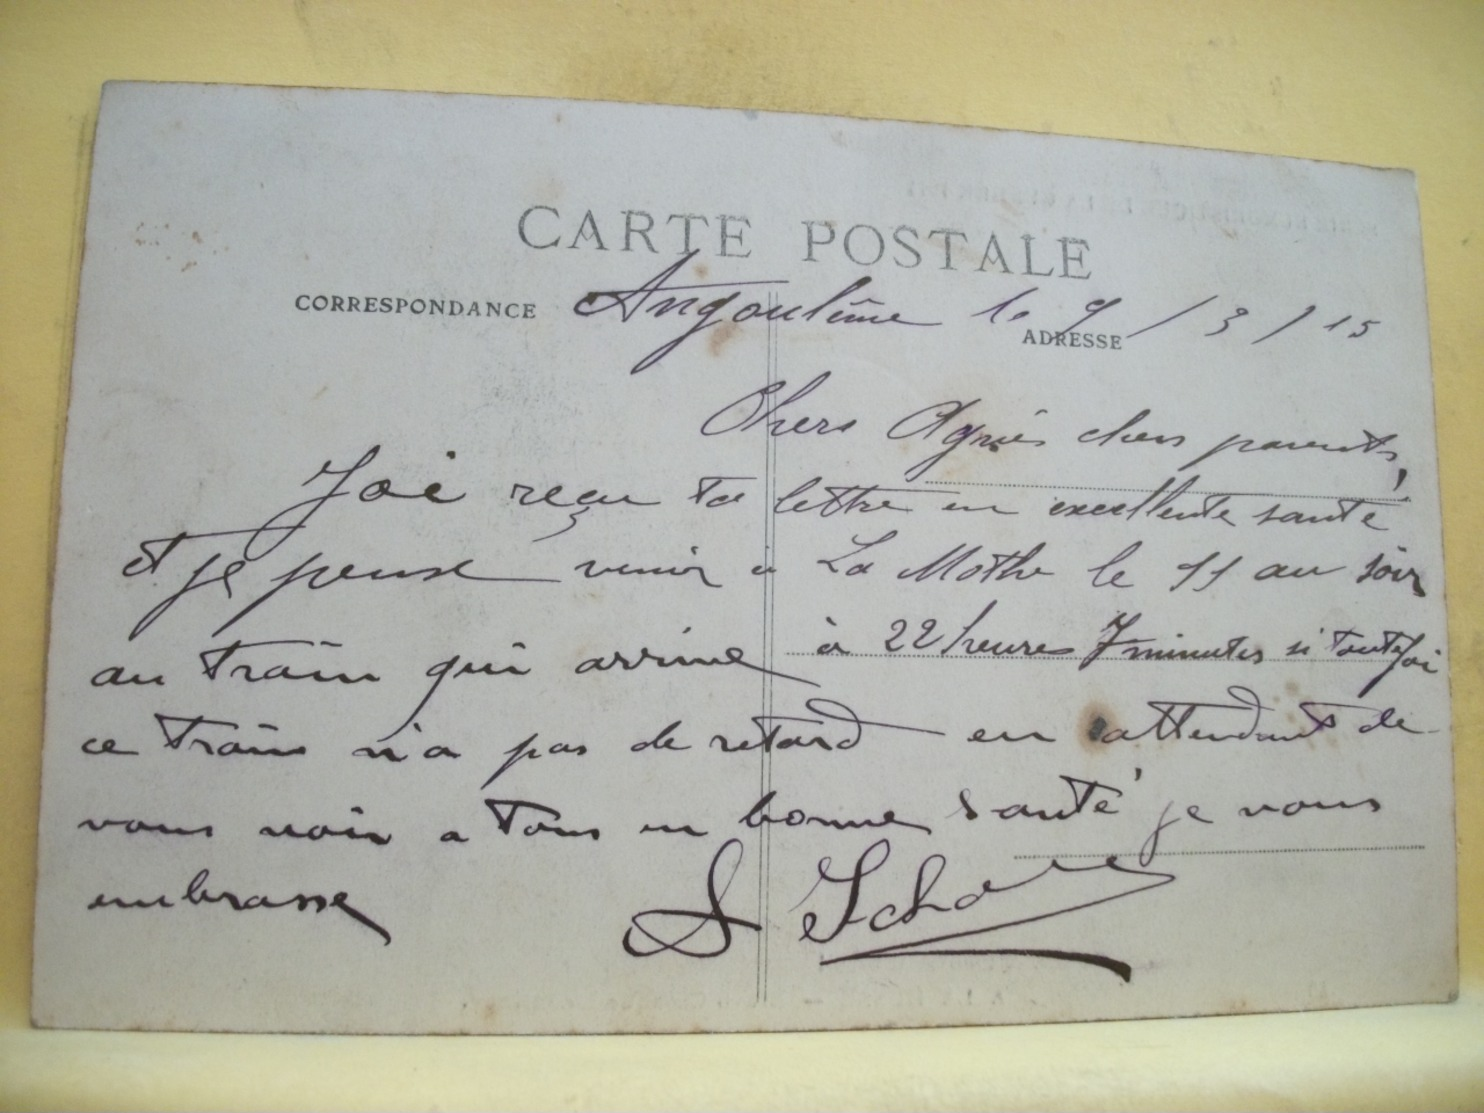 CARTE POSTALE
CORRESPONDANCE
ADRESSE
Angoulême le 9/3/15
Chers Agnès chers parents,
J'ai reçu ta lettre en excellente santé
et je pense venir à La Mothe le 11 au soir
au train qui arrive à 22 heures 7 minutes si toutefoi
ce train n'a pas de retard en attendant de
vous voir a tous en bonne santé je vous
embrasse